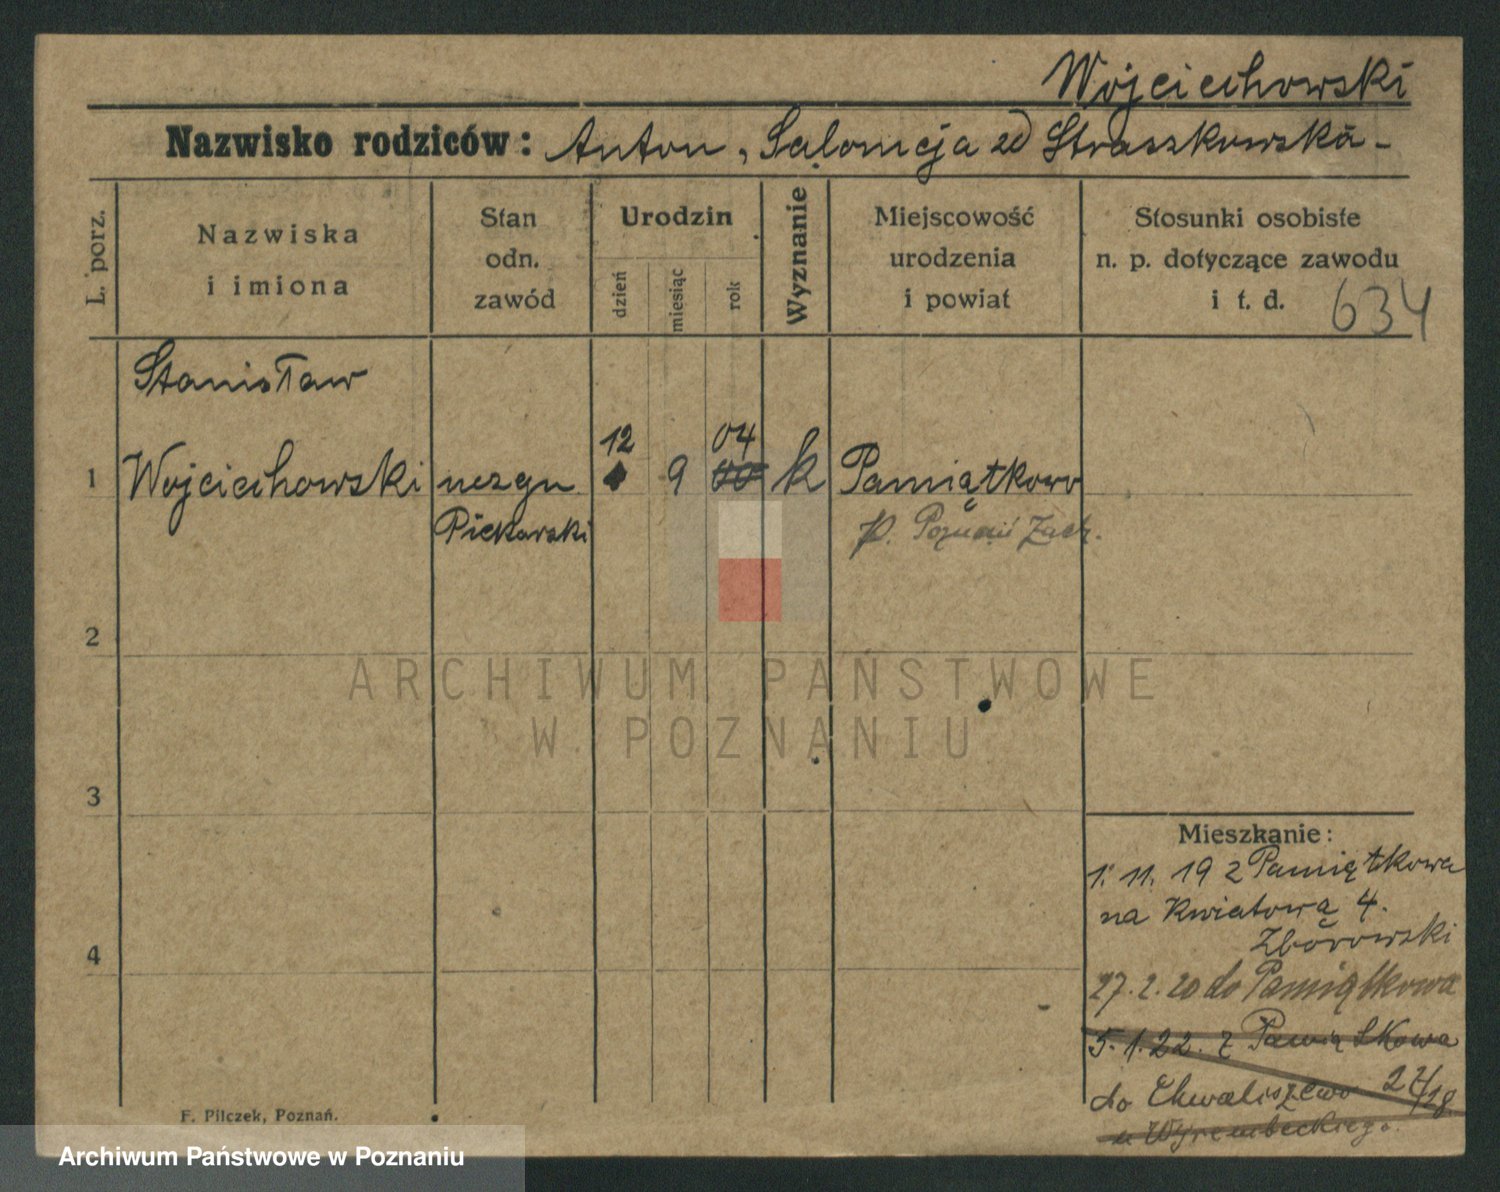 Wojciechowski
Nazwisko rodziców: Anton, Salomeja zd Straszkowska-
L. porz.
Nazwiska
i imiona
Stan
odn.
zawód
Urodzin
dzień
miesiąc
rok
Wyznanie
Miejscowość
urodzenia
i powiat
Stosunki osobiste
n. p. dotyczące zawodu
i t. d.
634
Stanisław
12 04
1 Wojciechowski 9 00 k Pamiątkowo
Piekarski p. Poznań Zach.
2
ARCHIWUM PAŃSTWOWE
W POZNANIU
3
Mieszkanie:
1. 11. 19 z Pamiątkowa
na Kwiatową 4.
Zborowski
4
27. 2. 20 do Pamiątkowa
5. 1. 22. z Pamiątkowa
do Chwaliszewo 27/28
u Wyrembeckiego.
F. Pilczek, Poznań.
Archiwum Państwowe w Poznaniu